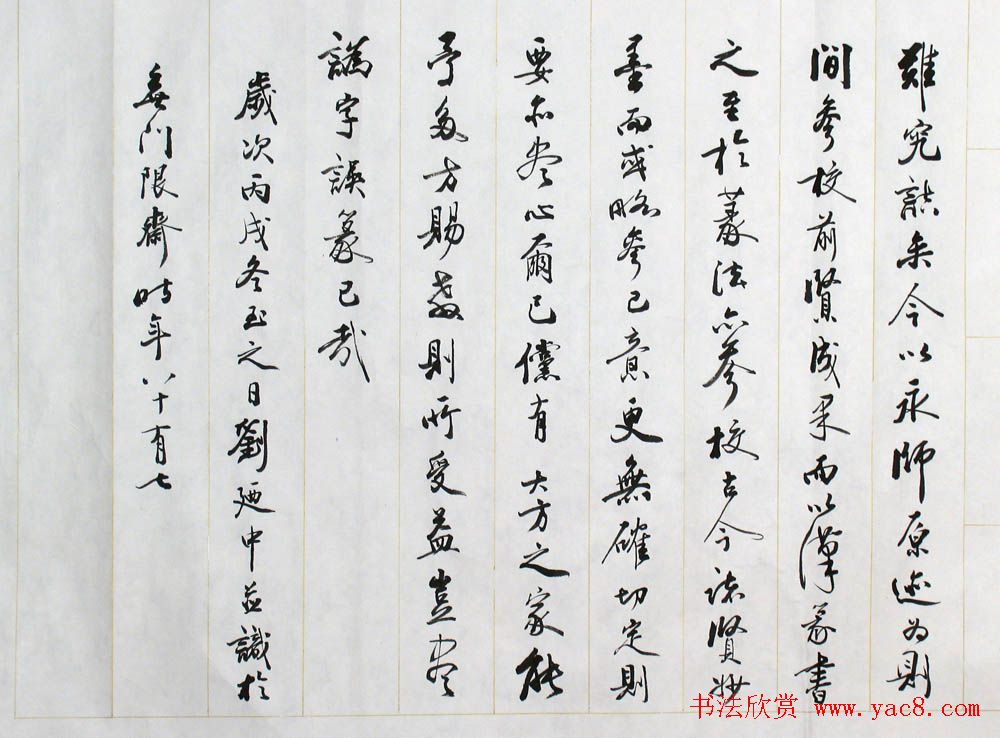 難究詰矣今以永師原迹為則
間參校前賢成果而以漢篆書
之至於篆法亦參校古今諸賢妙
墨而或略參己意更無確切定則
要亦盡心爾已儻有大方之家能
予多方賜教則所受益豈盡
譌字誤篆已哉
歲次丙戌冬至之日劉廼中並識於
無門限齋時年八十有七
书法欣赏 www.yac8.com